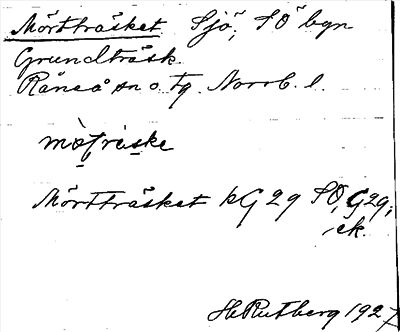 Mörtträsket Sjö, SO bgn
Grundträsk.
Råneå sn o. tg. Norrb. l.
Mörtträsket kG 29 SO, G29,
ek.
H. Rutberg 1927